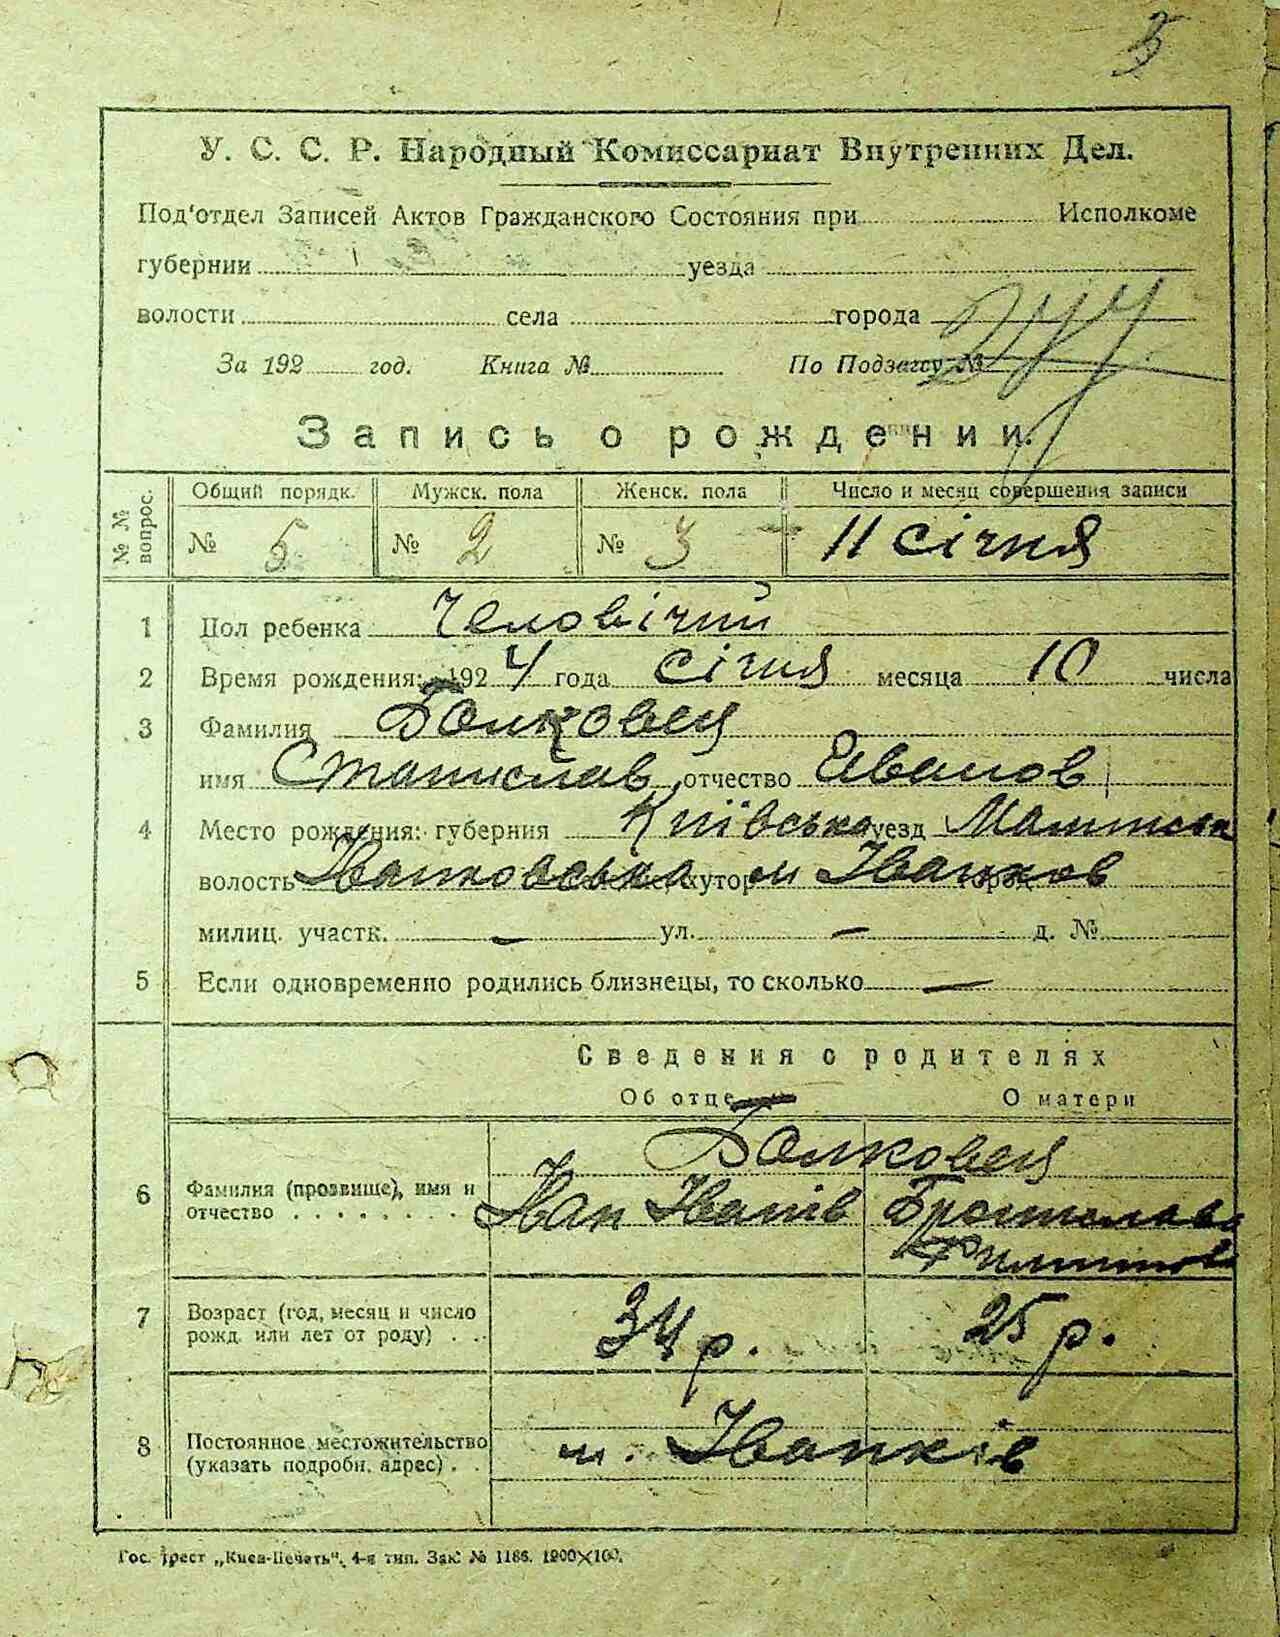 5
У. С. С. Р. Народный Комиссариат Внутренних Дел.
Под'отдел Записей Актов Гражданского Состояния при Исполкоме
губернии уезда
волости села города
За 192 год. Книга № По Подзагсу №
Запись о рождении.
№ № вопрос. Общий порядк. Мужск. пола Женск. пола Число и месяц совершения записи
№ 5 № 2 № 3 11 січня
1 Пол ребенка Чоловічий
2 Время рождения: 1924 года січня месяца 10 числа
3 Фамилия Болковец
имя Станислав отчество Иванов
4 Место рождения: губерния Київська уезд
волость Іванковська хутор м Іванков город
милиц. участк. — ул. — д. №
5 Если одновременно родились близнецы, то сколько —
Сведения о родителях
Об отце О матери
Болковец
6 Фамилия (прозвище), имя и отчество Іван Іванів Броніслава
7 Возраст (год, месяц и число рожд. или лет от роду) 34 р. 25 р.
8 Постоянное местожительство (указать подробн. адрес) м. Іванків
Гос. трест „Киев-Печать“, 4-я тип. Зак. № 1186. 1200×100.